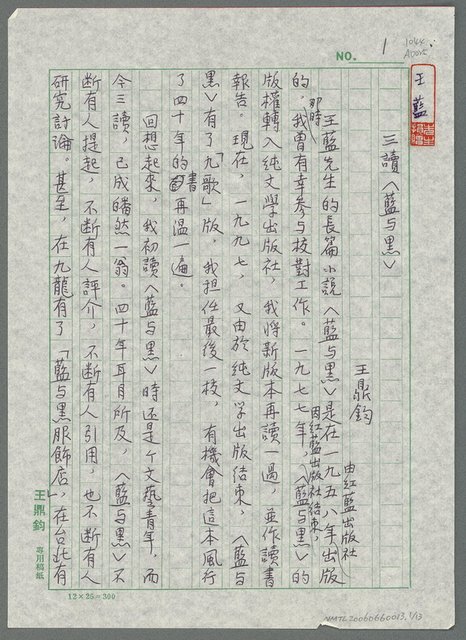 1
NO.
王藍
三讀〈藍与黑〉
王鼎鈞
王藍先生的長篇小說〈藍与黑〉是在一九五八年由紅藍出版社出版
的，那時我曾有幸參与校對工作。一九七七年，因紅藍出版社結束，〈藍与黑〉的
版權轉入純文學出版社，我將新版本再讀一過，並作讀書
報告。現在，一九九七，又由於純文学出版結束，〈藍与
黑〉有了「九歌」版，我担任最後一校，有機會把這本風行
了四十年的書再溫一遍。
回想起來，我初讀〈藍与黑〉時還是个文藝青年，而
今三讀，已成皤然一翁。四十年耳目所及，〈藍与黑〉不
断有人提起，不断有人評介，不断有人引用，也不断有人
研究討論。甚至，在九龍有了「藍与黑服飾店」，在台北有
王鼎鈞 專用稿紙
12×25=300
NMTL20060660013, 1/13